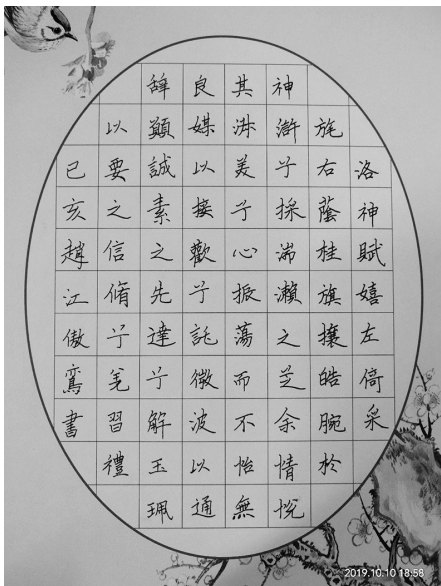 洛神賦嬉左倚采
旄右蔭桂旗攘皓腕於
神滸兮採湍瀨之芝余情悅
其淑美兮心振蕩而不怡無
良媒以接歡兮託微波以通
辭願誠素之先達兮解玉珮
以要之信脩兮羌習禮
己亥趙江傲鸞書
2019.10.10 18:58